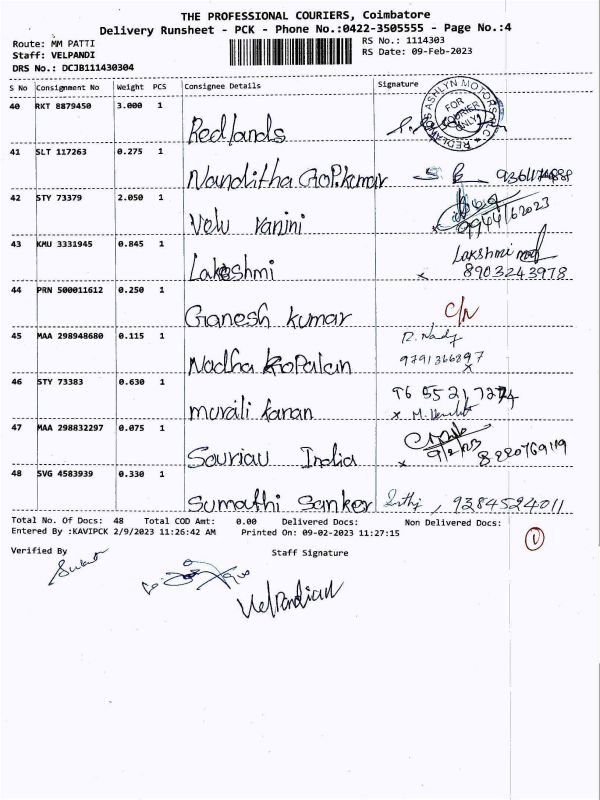 THE PROFESSIONAL COURIERS, Coimbatore
Delivery Runsheet - PCK - Phone No.:0422-3505555 - Page No.:4
Route: MM PATTI RS No.: 1114303
Staff: VELPANDI RS Date: 09-Feb-2023
DRS No.: DCJB111430304
S No Consignment No Weight PCS Consignee Details Signature
40 RKT 8879450 3.000 1 Redlands
REDLANDS ASHLYN MOTORS
FOR COURIER ONLY
41 SLT 117263 0.275 1 Nanditha Gop.kumar
42 STY 73379 2.050 1 Velu ranini 9944162023
43 KMU 3331945 0.845 1 Lakoshmi Lakshmi
8903243978
44 PRN 500011612 0.250 1 Ganesh kumar C/N
45 MAA 298948680 0.115 1 Nadha Gopalan
9791366897
46 STY 73383 0.630 1 murali kanan
47 MAA 298832297 0.075 1 Souriau India 9/2/23 8220769119
48 SVG 4583939 0.330 1 Sumathi Sanker 9384524011
Total No. Of Docs: 48 Total COD Amt: 0.00 Delivered Docs: Non Delivered Docs:
Entered By :KAVIPCK 2/9/2023 11:26:42 AM Printed On: 09-02-2023 11:27:15
Verified By Staff Signature
Velpandian